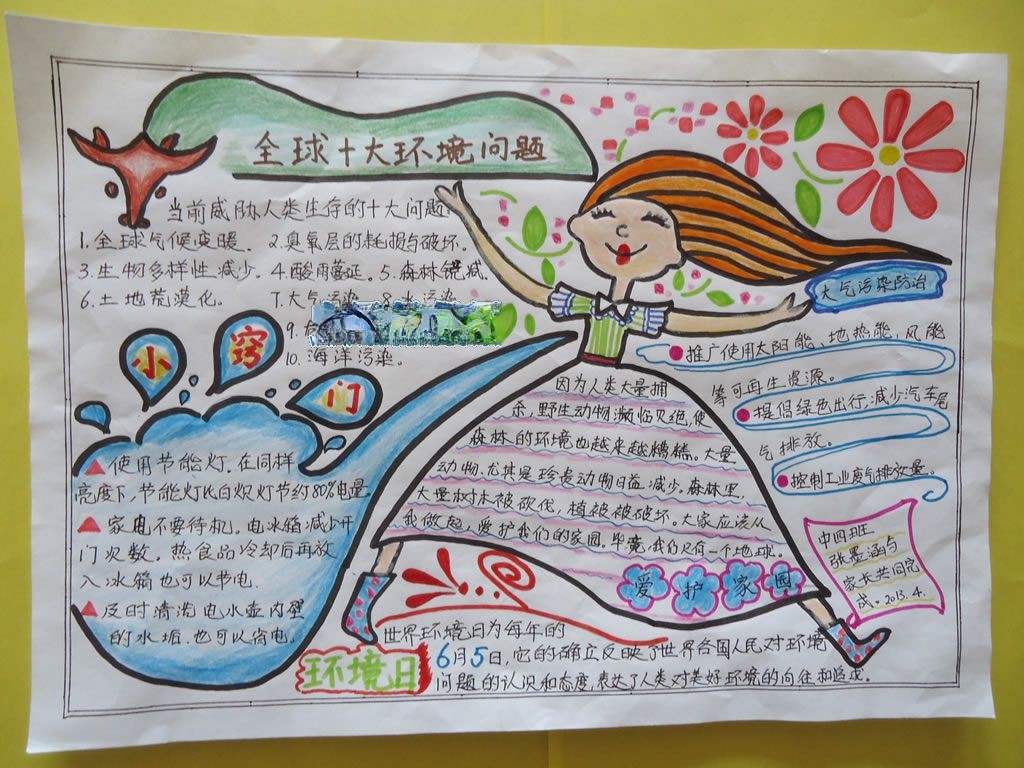 全球十大环境问题
当前威胁人类生存的十大问题
1.全球气候变暖. 2.臭氧层的耗损与破坏.
3.生物多样性减少. 4酸雨蔓延. 5.森林锐减.
6.土地荒漠化. 7.大气污染 8.水污染
9.
10.海洋污染。
小窍门
使用节能灯.在同样
亮度下,节能灯比白炽灯节约80%电量
家电不要待机。电冰箱减少开
门次数。热食品冷却后再放
入冰箱也可以节电.
及时清洗电水壶内壁
的水垢.也可以省电.
因为人类大量捕
杀,野生动物濒临灭绝,使
森林的环境也越来越糟糕。大量
动物.尤其是珍贵动物日益减少。森林里,
大量树木被砍伐,植被被破坏。大家应该从
我做起,爱护我们的家园。毕竟,我们只有一个地球。
爱护家园
大气污染防治
推广使用太阳能、地热能,风能
等可再生资源。
提倡绿色出行,减少汽车尾
气排放。
控制工业废气排放量。
中四班
张墨涵与
家长共同完
成。2013.4.
环境日
世界环境日为每年的
6月5日,它的确立反映了世界各国人民对环境
问题的认识和态度,表达了人类对美好环境的向往和追求。